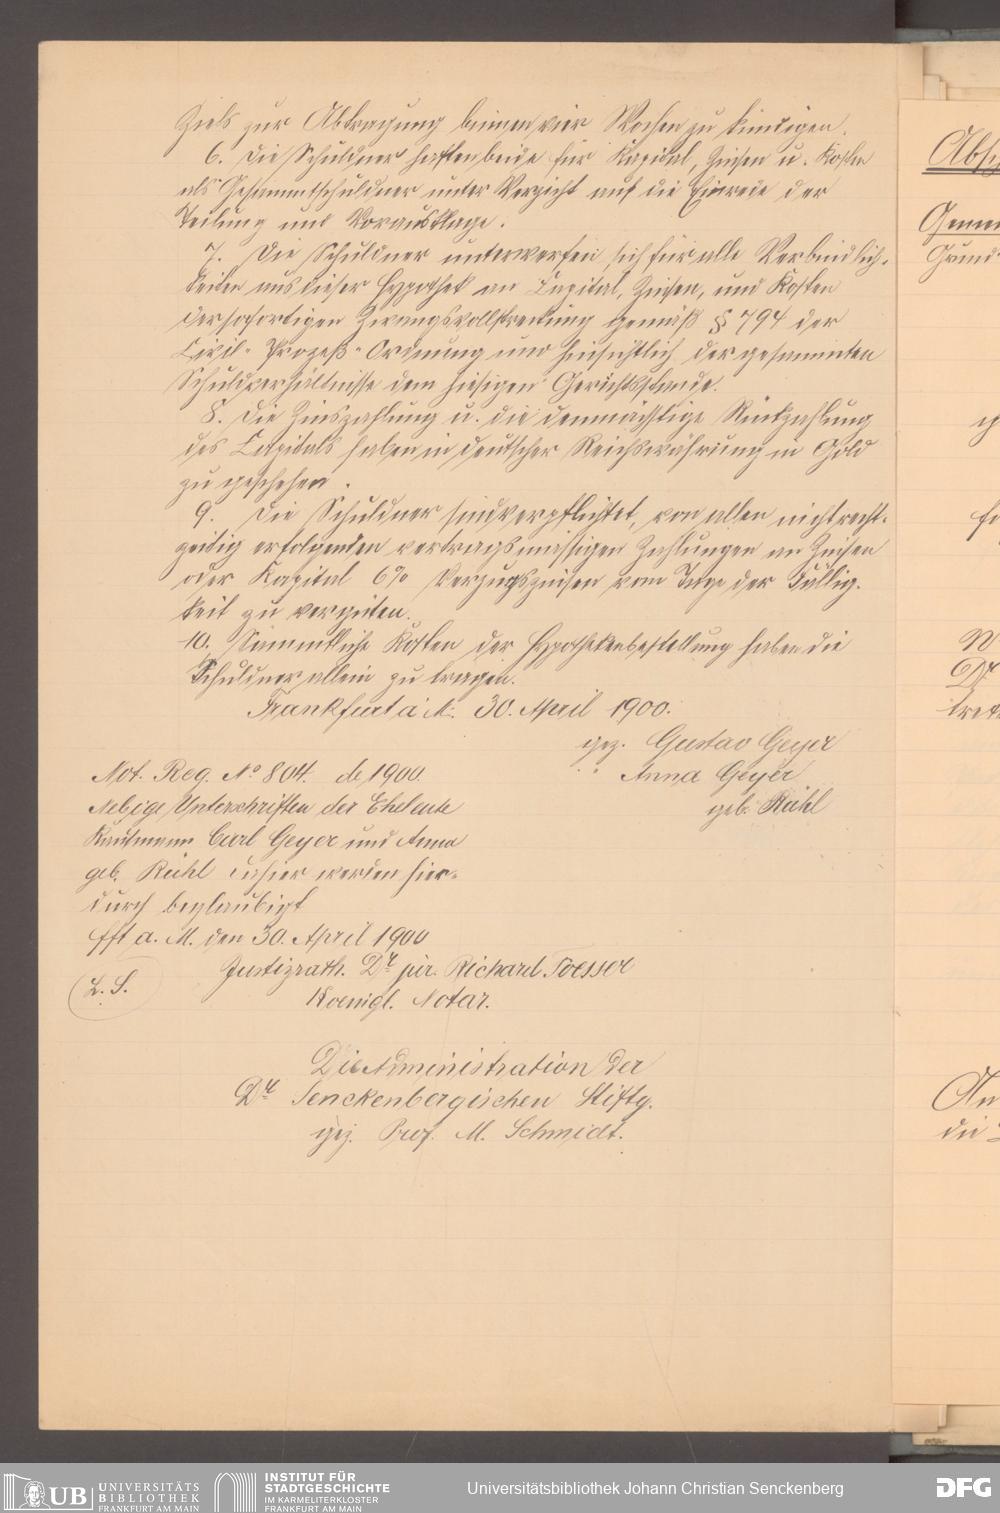 Ziels zur Abtragung binnen vier Wochen zu kündigen.
6. Die Schuldner haften beide für Kapital, Zinsen u. Kosten
als Gesammtschuldner unter Verzicht auf die Einrede der
Teilung und Vorausklage.
7. Die Schuldner unterwerfen sich für alle Verbindlich-
keiten aus dieser Hypothek an Capital, Zinsen, und Kosten
der sofortigen Zwangsvollstreckung gemäß § 794 der
Civil-Prozeß-Ordnung und hinsichtlich der gesammten
Schuldverhältnisse dem hiesigen Gerichtsstande.
8. Die Zinszahlung u. die demnächstige Rückzahlung
des Capitals haben in deutscher Reichswährung in Gold
zu geschehen.
9. Die Schuldner sind verpflichtet, von allen nicht recht-
zeitig erfolgenden vertragsmässigen Zahlungen an Zinsen
oder Kapital 6% Verzugszinsen vom Tage der Fällig-
keit zu vergüten.
10. Sämmtliche Kosten der Hypothekenbestellung haben die
Schuldner allein zu tragen.
Frankfurt a. M. 30. April 1900.
gez. Gustav Geyer
" Anna Geyer
geb. Rühl
Not. Reg. No 804. de 1900
Nebige Unterschriften der Eheleute
Kaufmann Carl Geyer und Anna
geb. Rühl dahier werden hier-
durch beglaubigt
Fft a. M. den 30. April 1900
L. S.
Justizrath. Dr. jur. Richard
Koenigl. Notar.
Die Administration der
Dr. Senckenbergischen Stiftg.
gez. Prof. M. Schmidt.
UB
UNIVERSITÄTS
BIBLIOTHEK
FRANKFURT AM MAIN
INSTITUT FÜR
STADTGESCHICHTE
IM KARMELITERKLOSTER
FRANKFURT AM MAIN
Universitätsbibliothek Johann Christian Senckenberg
DFG